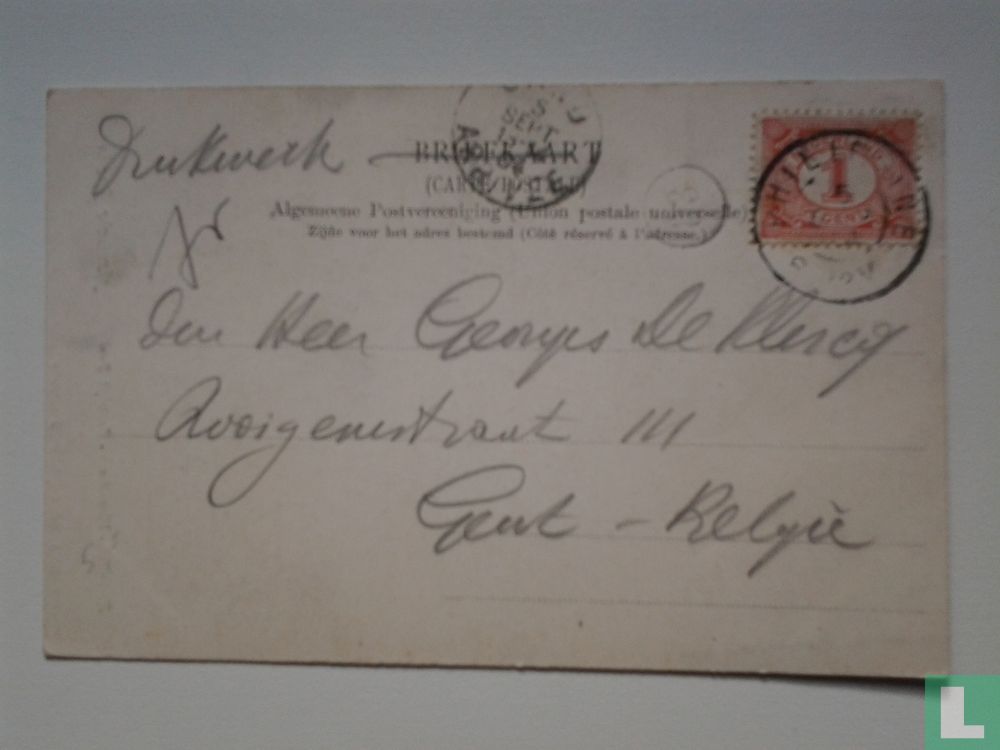 Drukwerk
BRIEFKAART
(CARTE POSTALE)
Algemeene Postvereeniging (Union postale universelle)
Zijde voor het adres bestemd (Côté réservé à l'adresse.)
SEPT
1
1 CENT
den Heer Georges De Clercq
Rooigemstraat 111
Gent - België
L